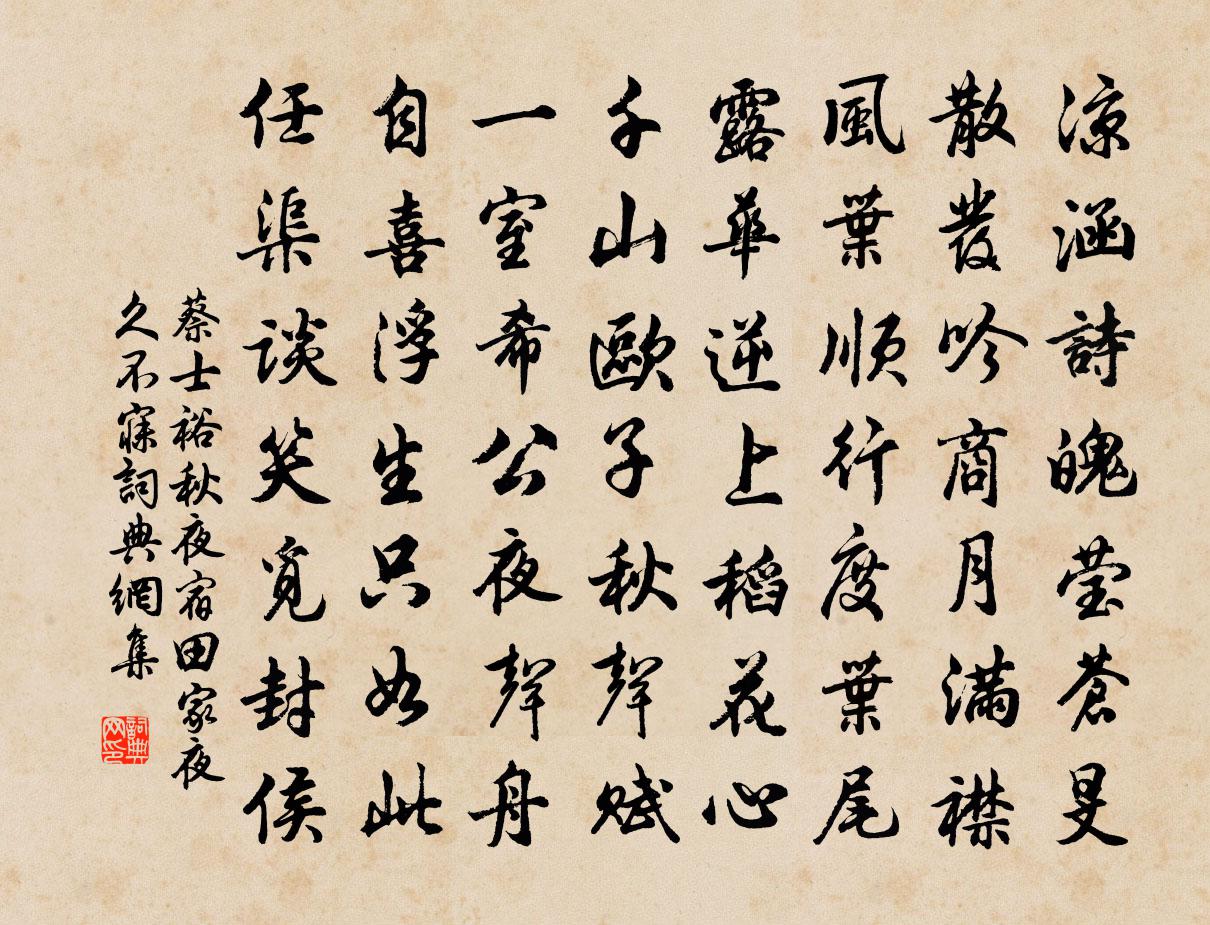 涼涵詩魄莹蒼旻
散發吟商月满襟
風葉順行度葉尾
露華逆上稻花心
千山歐子秋聲賦
一室希公夜聲舟
自喜浮生只如此
任渠談笑覓封侯
蔡士裕秋夜宿田家夜
久不寐詞典網集
詞典网印